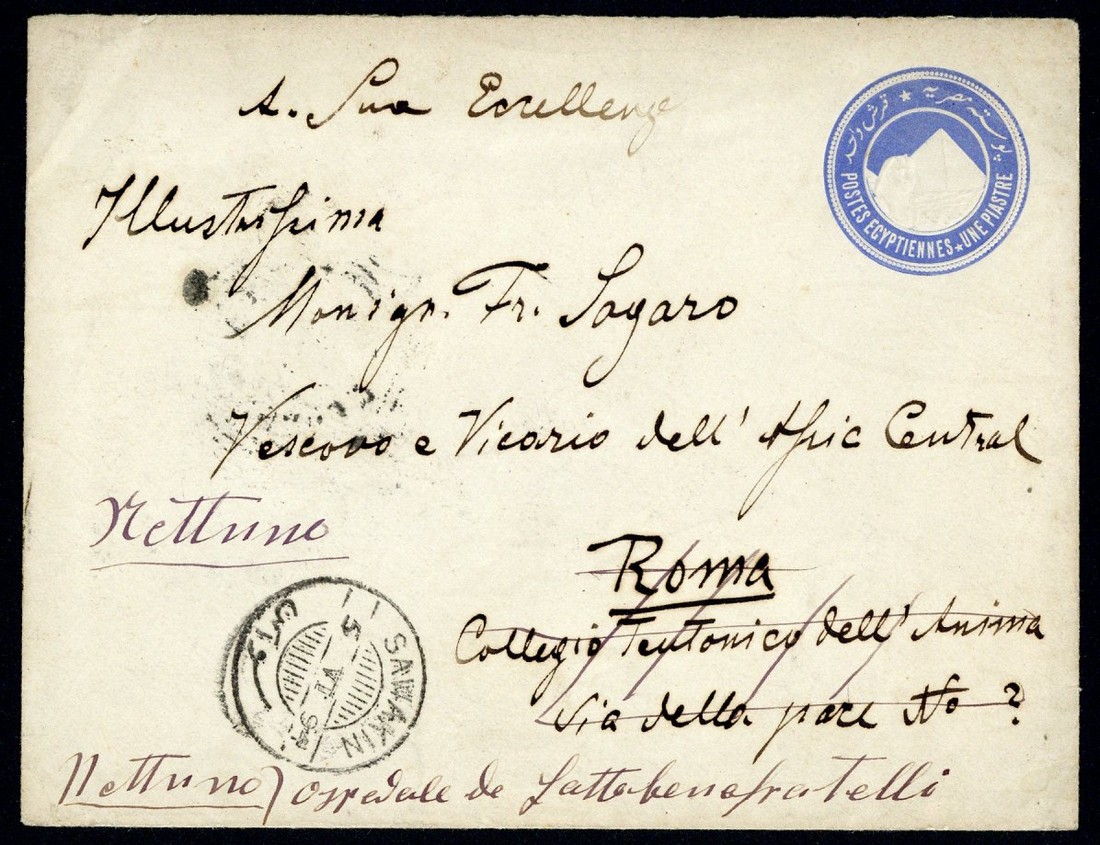 A. Sua Eccellenza
بوسته مصريه ★ قرش واحد
POSTES EGYPTIENNES ★ UNE PIASTRE
Illustrissima
Monigr. Fr. Sogaro
Vescovo e Vicario dell' Afric Central
Nettuno
Roma
Collegio Teutonico dell' Anima
Via della pace No ?
SAWAKIN
5 VI
Nettuno) ospedale de Fattebenefratelli